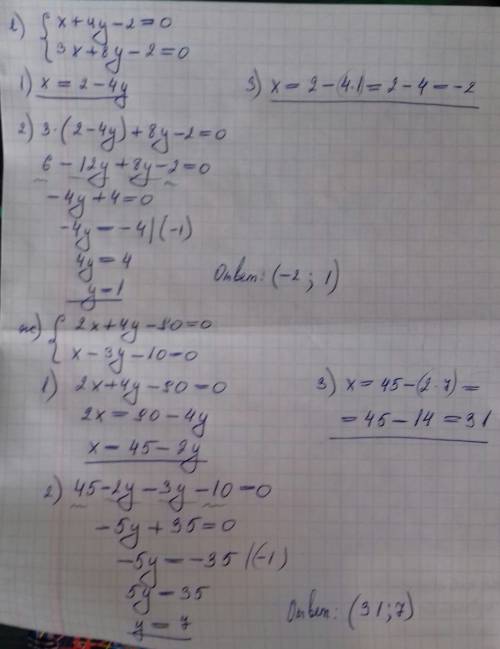 г) { x + 4y - 2 = 0
3x + 8y - 2 = 0
1) x = 2 - 4y
3) x = 2 - (4·1) = 2 - 4 = -2
2) 3·(2 - 4y) + 8y - 2 = 0
6 - 12y + 8y - 2 = 0
-4y + 4 = 0
-4y = -4 | (-1)
4y = 4
y = 1
Ответ: (-2; 1)
ж) { 2x + 4y - 90 = 0
x - 3y - 10 = 0
1) 2x + 4y - 90 = 0
2x = 90 - 4y
x = 45 - 2y
3) x = 45 - (2·7) =
= 45 - 14 = 31
2) 45 - 2y - 3y - 10 = 0
-5y + 35 = 0
-5y = -35 | (-1)
5y = 35
y = 7
Ответ: (31; 7)